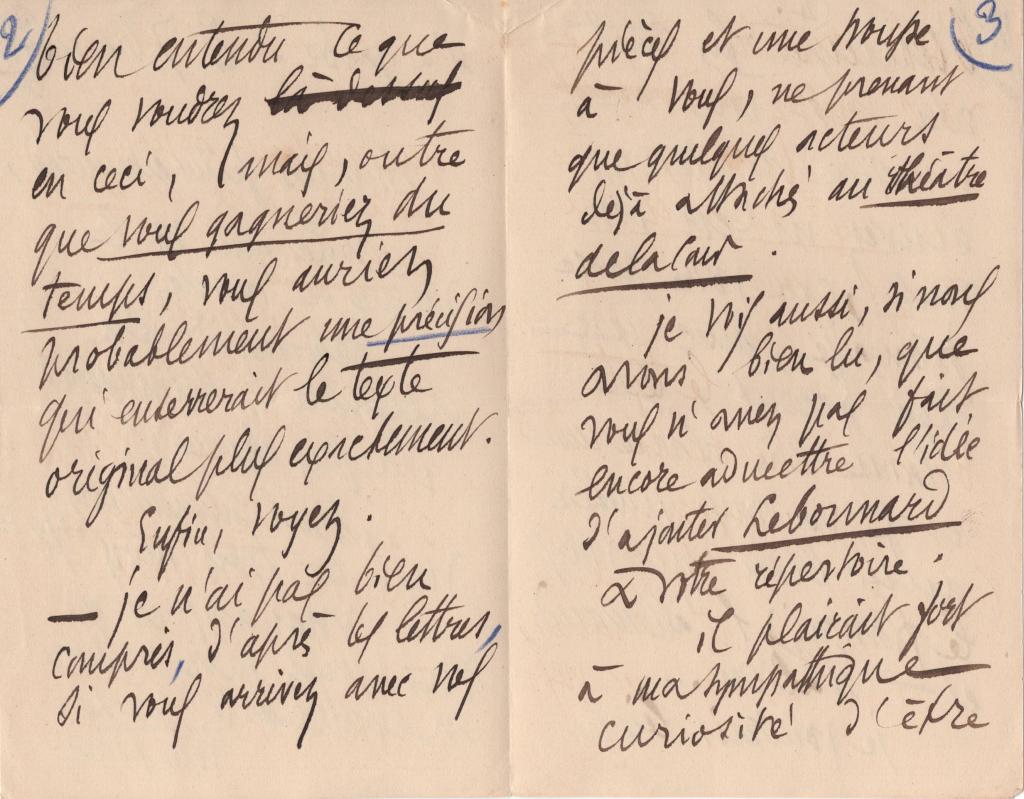 2
bien entendu ce que
vous voudrez là dessus
en ceci, mais, outre
que vous gagneriez du
temps, vous auriez
probablement une précision
qui enserrerait le texte
original plus exactement.
Enfin, voyez.
— je n'ai pas bien
compris, d'après les lettres,
si vous arrivez avec vos
3
pièces et une troupe
à vous, ne prenant
que quelques acteurs
déjà attachés au théâtre
de la Cour.
je vois aussi, si nous
avons bien lu, que
vous n'avez pas fait
encore admettre l'idée
d'ajouter Lebonnard
à votre répertoire.
il plairait fort
à ma sympathique
curiosité d'être